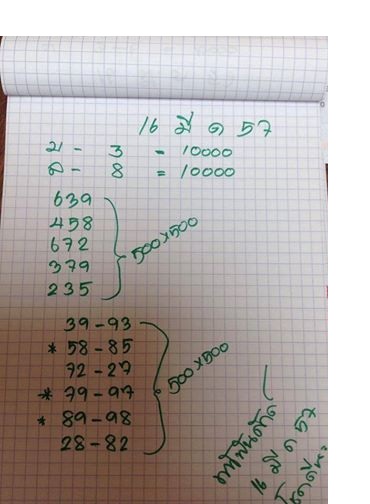 16 มี ค 57
บ - 3 = 10000
ล - 8 = 10000
639
458
672
379
235
500x500
39-93
* 58-85
72-27
* 79-97
* 89-98
28-82
500x500
16 มี ค 57